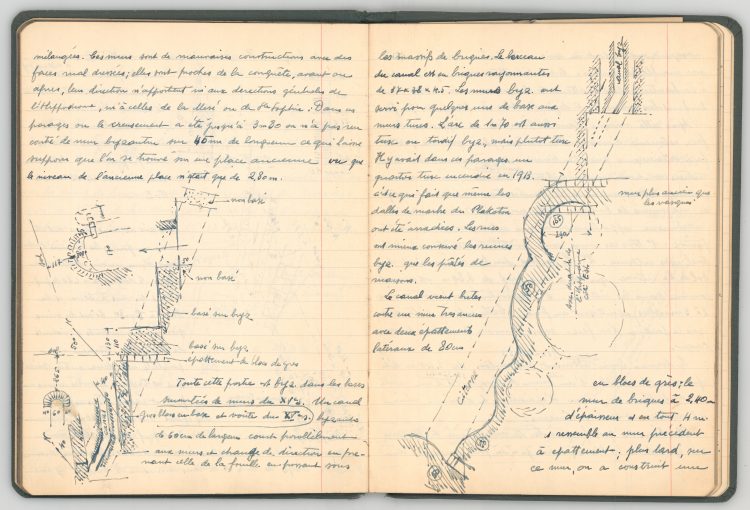 mélangées. Ces murs sont de mauvaises constructions avec des
faces mal dressées; elles sont proches de la conquête, avant ou
après, leur direction n'appartient ni aux directions générales de
l'Hippodrome, ni à celles de la Mesé ou de Ste Sophie. Dans ces
parages où le creusement a été jusqu'à 3m80 on n'a pas ren
contré de mur byzantin sur 45m de longueur ce qui laisse
supposer que l'on se trouve sur une place ancienne vu que
le niveau de l'ancienne place n'était que de 2,80m.
non basé
non basé
basé sur byz
basé sur byz
épattement de blocs de grès
Toute cette partie est byz. dans les bases
de murs du XIe s. Un canal
en base et voûte du byzantin
de 60cm de largeur court parallèlement
aux murs et change de direction en pre
nant celle de la fouille en passant sous
les massifs de briques. Le berceau
du canal est en briques rayonnantes
de 38 4.5. Les murs byz. ont
servi pour quelques uns de base aux
murs turcs. L'arc de 1m70 est aussi
turc ou tardif byz, mais plutôt turc
Il y avait dans ces parages un
quartier turc incendié en 1913.
c'est ce qui fait que même les
dalles de marbre du
ont été arrachées. Les rues
ont mieux conservé les ruines
byz. que les pâtés de
maisons.
Le canal vient
contre un mur
avec deux épattements
latéraux de 80cm
canal byz
murs plus ancien que
les vasques
en blocs de grès; le
mur de briques a 2,40m
d'épaisseur et en tout 4m
ressemble au mur précédent
à épattement; plus tard, sur
ce mur, on a construit une